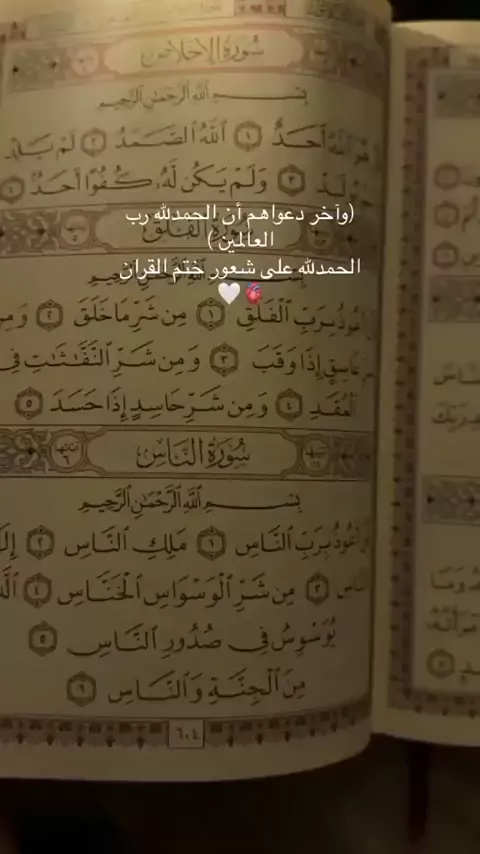 سُورَةُ الإِخْلَاصِ
بِسْمِ اللَّهِ الرَّحْمَٰنِ الرَّحِيمِ
هُوَ اللَّهُ أَحَدٌ ١ اللَّهُ الصَّمَدُ ٢ لَمْ يَلِدْ
يُولَدْ ٣ وَلَمْ يَكُن لَّهُ كُفُوًا أَحَدٌ ٤
(وآخر دعواهم أن الحمدلله رب
العالمين )
سُورَةُ الفَلَقِ
الحمدلله على شعور ختم القران
🫀🤍
بِسْمِ اللَّهِ الرَّحْمَٰنِ الرَّحِيمِ
أَعُوذُ بِرَبِّ الْفَلَقِ ١ مِن شَرِّ مَا خَلَقَ ٢ وَمِن
غَاسِقٍ إِذَا وَقَبَ ٣ وَمِن شَرِّ النَّفَّاثَاتِ فِي
الْعُقَدِ ٤ وَمِن شَرِّ حَاسِدٍ إِذَا حَسَدَ ٥
سُورَةُ النَّاسِ
بِسْمِ اللَّهِ الرَّحْمَٰنِ الرَّحِيمِ
أَعُوذُ بِرَبِّ النَّاسِ ١ مَلِكِ النَّاسِ ٢ إِلَٰهِ
النَّاسِ ٣ مِن شَرِّ الْوَسْوَاسِ الْخَنَّاسِ ٤ الَّذِي
يُوَسْوِسُ فِي صُدُورِ النَّاسِ ٥
مِنَ الْجِنَّةِ وَالنَّاسِ ٦
٦٠٤